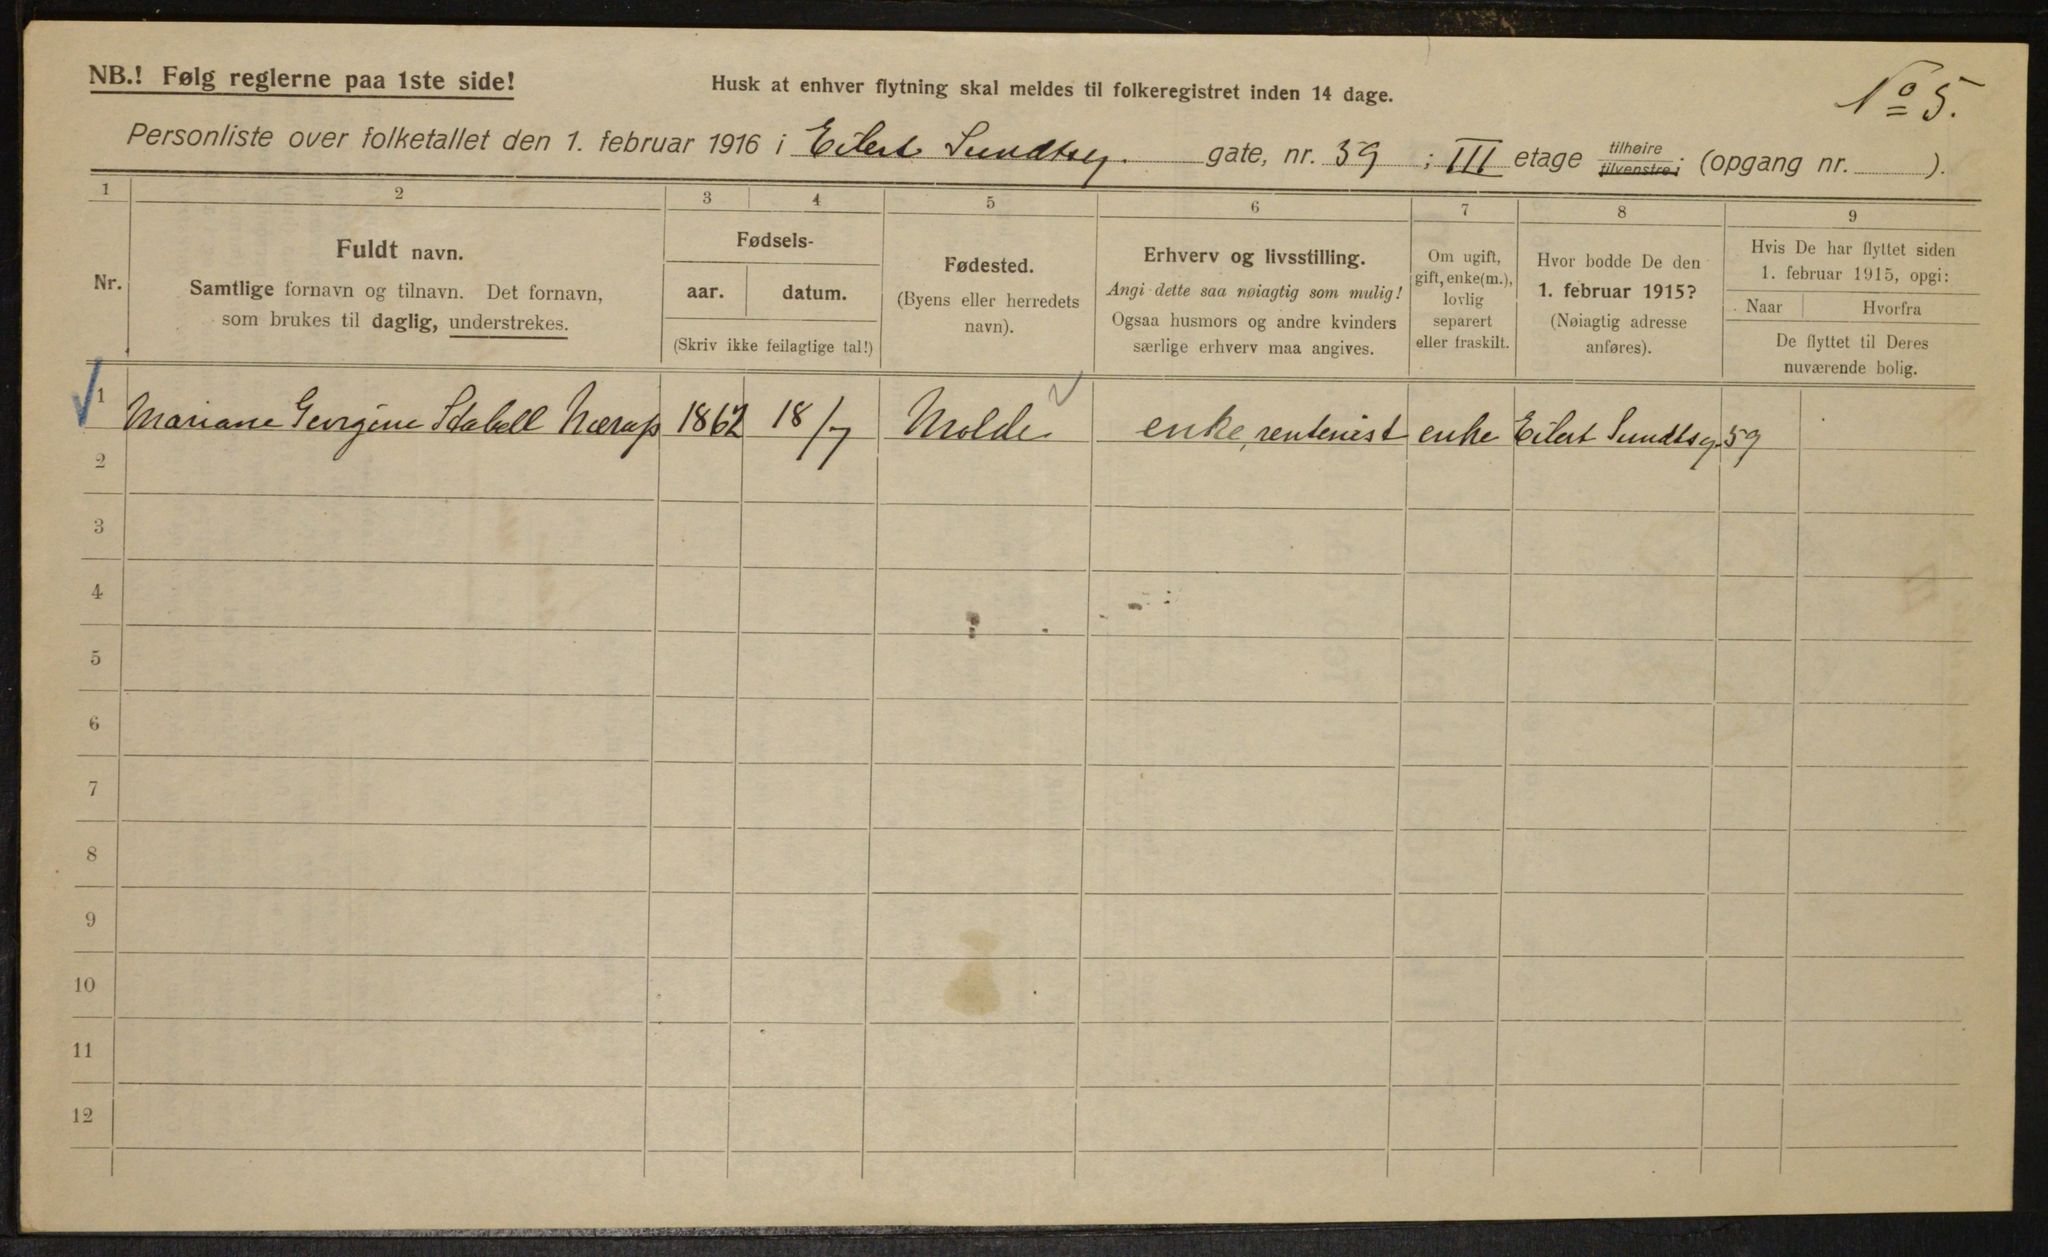 NB.! Følg reglerne paa 1ste side!
Husk at enhver flytning skal meldes til folkeregistret inden 14 dage.
No 5.
Personliste over folketallet den 1. februar 1916 i Eilert Sundtsg. gate, nr. 59 ; III etage tilhøire tilvenstre; (opgang nr. ).
1 2 3 4 5 6 7 8 9
Nr.
Fuldt navn.
Samtlige fornavn og tilnavn. Det fornavn,
som brukes til daglig, understrekes.
Fødsels-
aar. datum.
(Skriv ikke feilagtige tal!)
Fødested.
(Byens eller herredets
navn).
Erhverv og livsstilling.
Angi dette saa nøiagtig som mulig!
Ogsaa husmors og andre kvinders
særlige erhverv maa angives.
Om ugift,
gift, enke(m.),
lovlig
separert
eller fraskilt.
Hvor bodde De den
1. februar 1915?
(Nøiagtig adresse
anføres).
Hvis De har flyttet siden
1. februar 1915, opgi:
Naar Hvorfra
De flyttet til Deres
nuværende bolig.
1 Mariane Georgine Stabell Nærup 1862 18/7 Molde enke, rentenist enke Eilert Sundtsg. 59
2
3
4
5
6
7
8
9
10
11
12